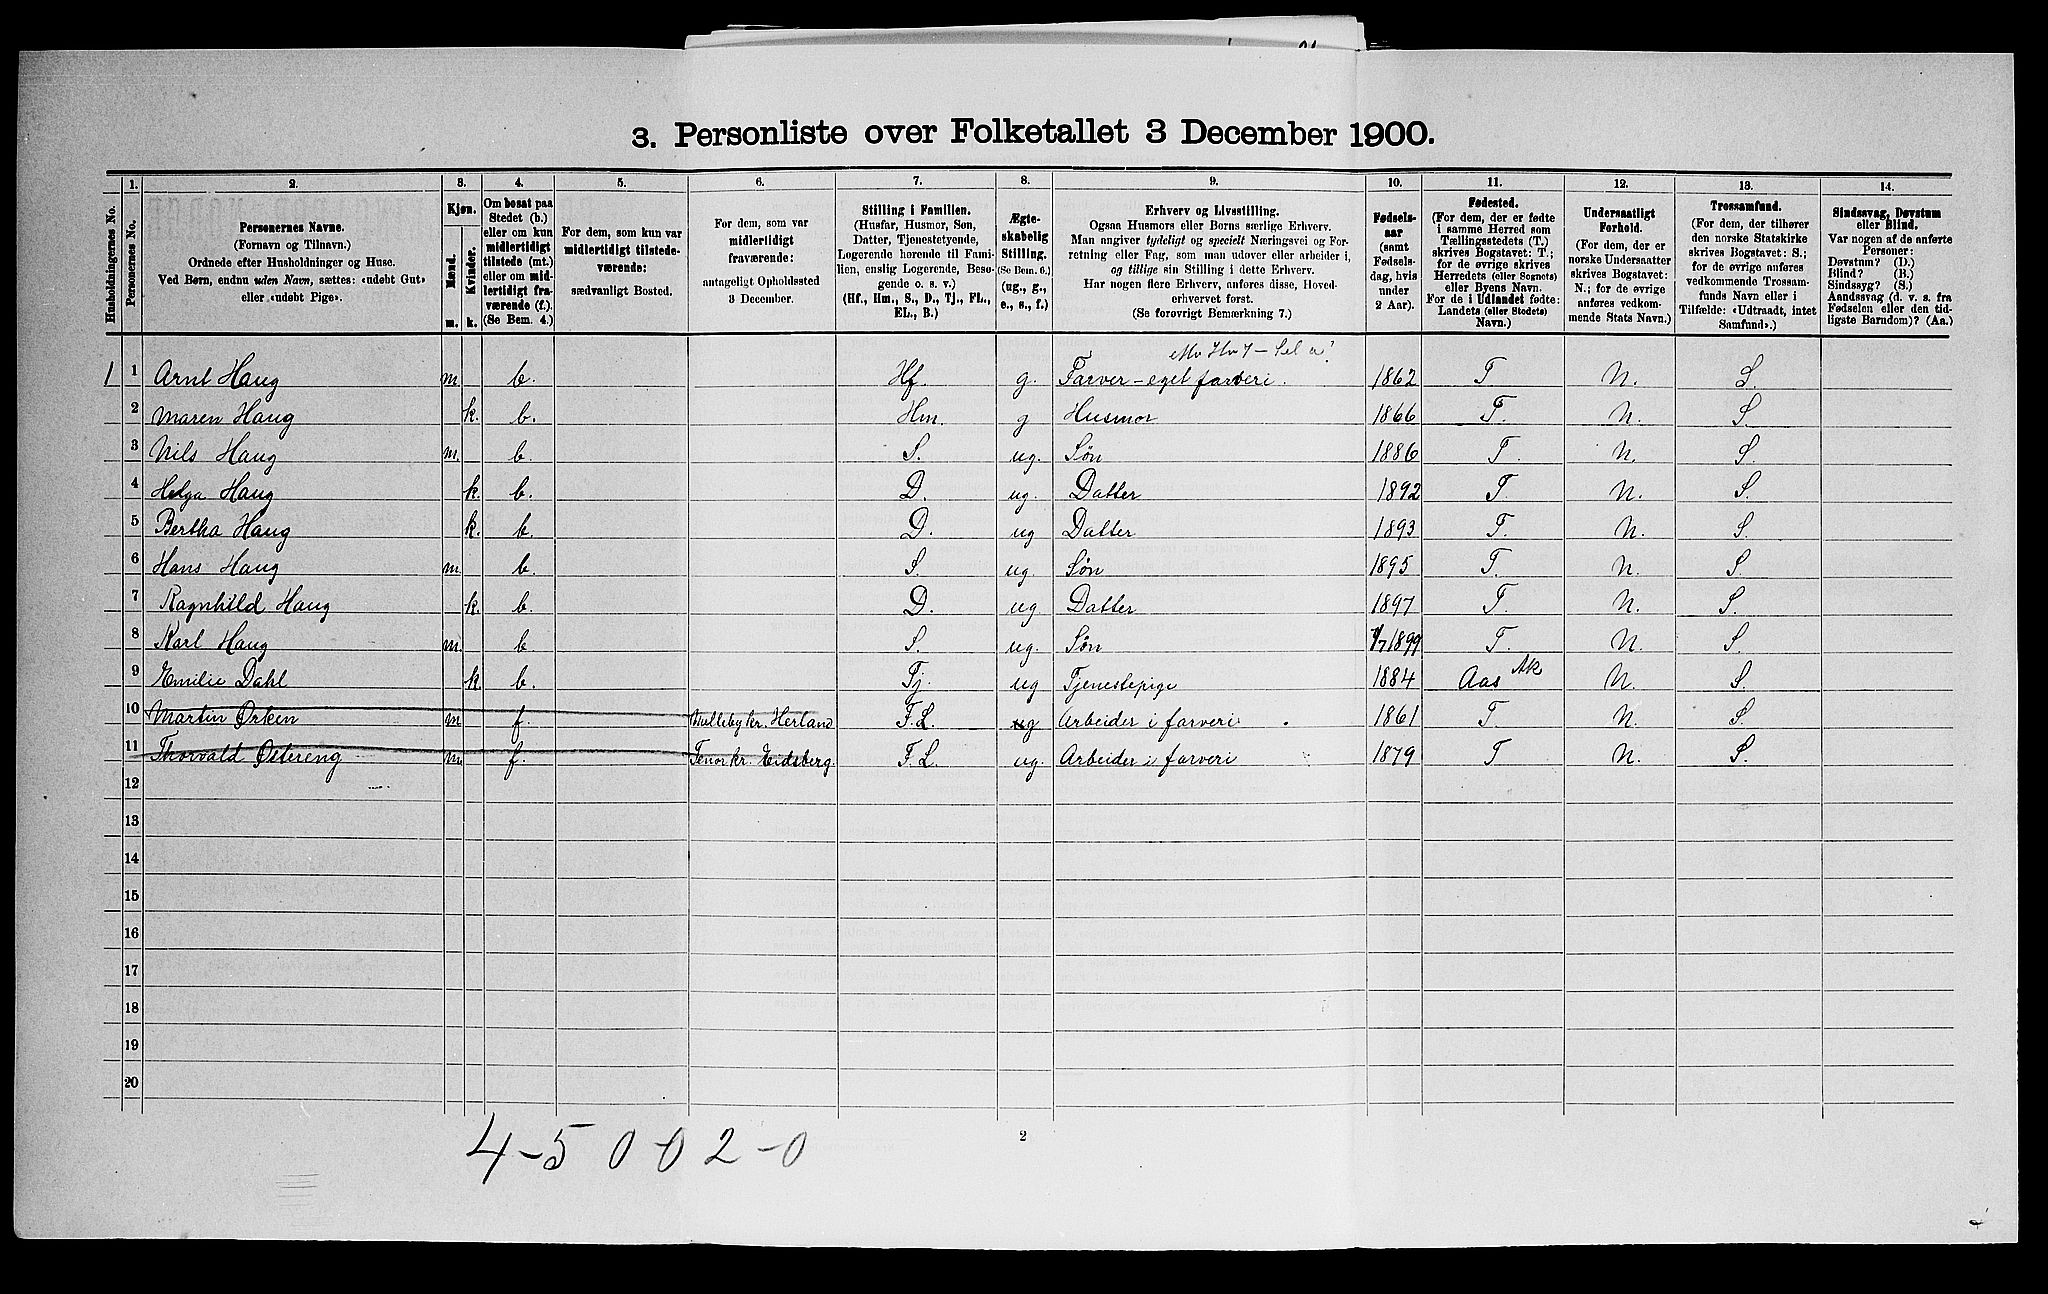 3. Personliste over Folketallet 3 December 1900.
Husholdningernes No.
1.
Personernes No.
2.
Personernes Navne.
(Fornavn og Tilnavn.)
Ordnede efter Husholdninger og Huse.
Ved Børn, endnu uden Navn, sættes: «udøbt Gut»
eller «udøbt Pige».
3.
Kjøn.
Mænd.
Kvinder.
m. k.
4.
Om bosat paa
Stedet (b.)
eller om kun
midlertidigt
tilstede (mt.)
eller om mid-
lertidigt fra-
værende (f.).
(Se Bem. 4.)
5.
For dem, som kun var
midlertidigt tilstede-
værende:
sædvanligt Bosted.
6.
For dem, som var
midlertidigt
fraværende:
antageligt Opholdssted
3 December.
7.
Stilling i Familien.
(Husfar, Husmor, Søn,
Datter, Tjenestetyende,
Logerende hørende til Fami-
lien, enslig Logerende, Besø-
gende o. s. v.)
(Hf., Hm., S., D., Tj., FL.,
EL., B.)
8.
Ægte-
skabelig
Stilling.
(Se Bem. 6.)
(ug., g.,
e., s., f.)
9.
Erhverv og Livsstilling.
Ogsaa Husmors eller Børns særlige Erhverv.
Man angiver tydeligt og specielt Næringsvei og For-
retning eller Fag, som man udover eller arbeider i,
og tillige sin Stilling i dette Erhverv.
Har nogen flere Erhverv, anføres disse, Hoved-
erhvervet først.
(Se forøvrigt Bemærkning 7.)
10.
Fødsels-
aar
(samt
Fødsels-
dag, hvis
under
2 Aar).
11.
Fødested.
(For dem, der er fødte
i samme Herred som
Tællingsstedets (T.)
skrives Bogstavet: T.;
for de øvrige skrives
Herredets (eller Sognets)
eller Byens Navn.
For de i Udlandet fødte:
Landets (eller Stedets)
Navn.)
12.
Undersaatligt
Forhold.
(For dem, der er
norske Undersaatter
skrives Bogstavet:
N.; for de øvrige
anføres vedkom-
mende Stats Navn.)
13.
Trossamfund.
(For dem, der tilhører
den norske Statskirke
skrives Bogstavet: S.;
for de øvrige anføres
vedkommende Trossam-
funds Navn eller i
Tilfælde: «Udtraadt, intet
Samfund».)
14.
Sindssvag, Døvstum
eller Blind.
Var nogen af de anførte
Personer:
Døvstum? (D.)
Blind? (B.)
Sindssyg? (S.)
Aandssvag (d. v. s. fra
Fødselen eller den tid-
ligste Barndom)? (Aa.)
1 1 Arnt Haug m. b. Hf. g. Farver – eget farveri. 1862 T N. S.
2 Maren Haug k. b. Hm. g Husmor 1866 T. N. S.
3 Nils Haug m. b. S. ug. Søn 1886 T. N. S.
4 Helga Haug k. b. D. ug. Datter 1892 T. N. S.
5 Bertha Haug k. b. D. ug Datter 1893 T. N. S.
6 Hans Haug m. b. S. ug Søn 1895 T. N. S.
7 Ragnhild Haug k. b. D. ug Datter 1897 T. N. S.
8 Karl Haug m. b. S. ug. Søn /7 1899 T. N. S.
9 Emilie Dahl k. b. Tj. ug Tjenestepige 1884 Aas Ak N. S.
10 Martin Ørken m f. Mullebykr. Herland F. L. ug Arbeider i farveri 1861 T N. S.
11 Thorvald Østereng m. f. Tenorkr. Eidsberg. F. L. ug. Arbeider i farveri 1879 T N. S.
12
13
14
15
16
17
18
19
20
4-5 0-0 2-0
2